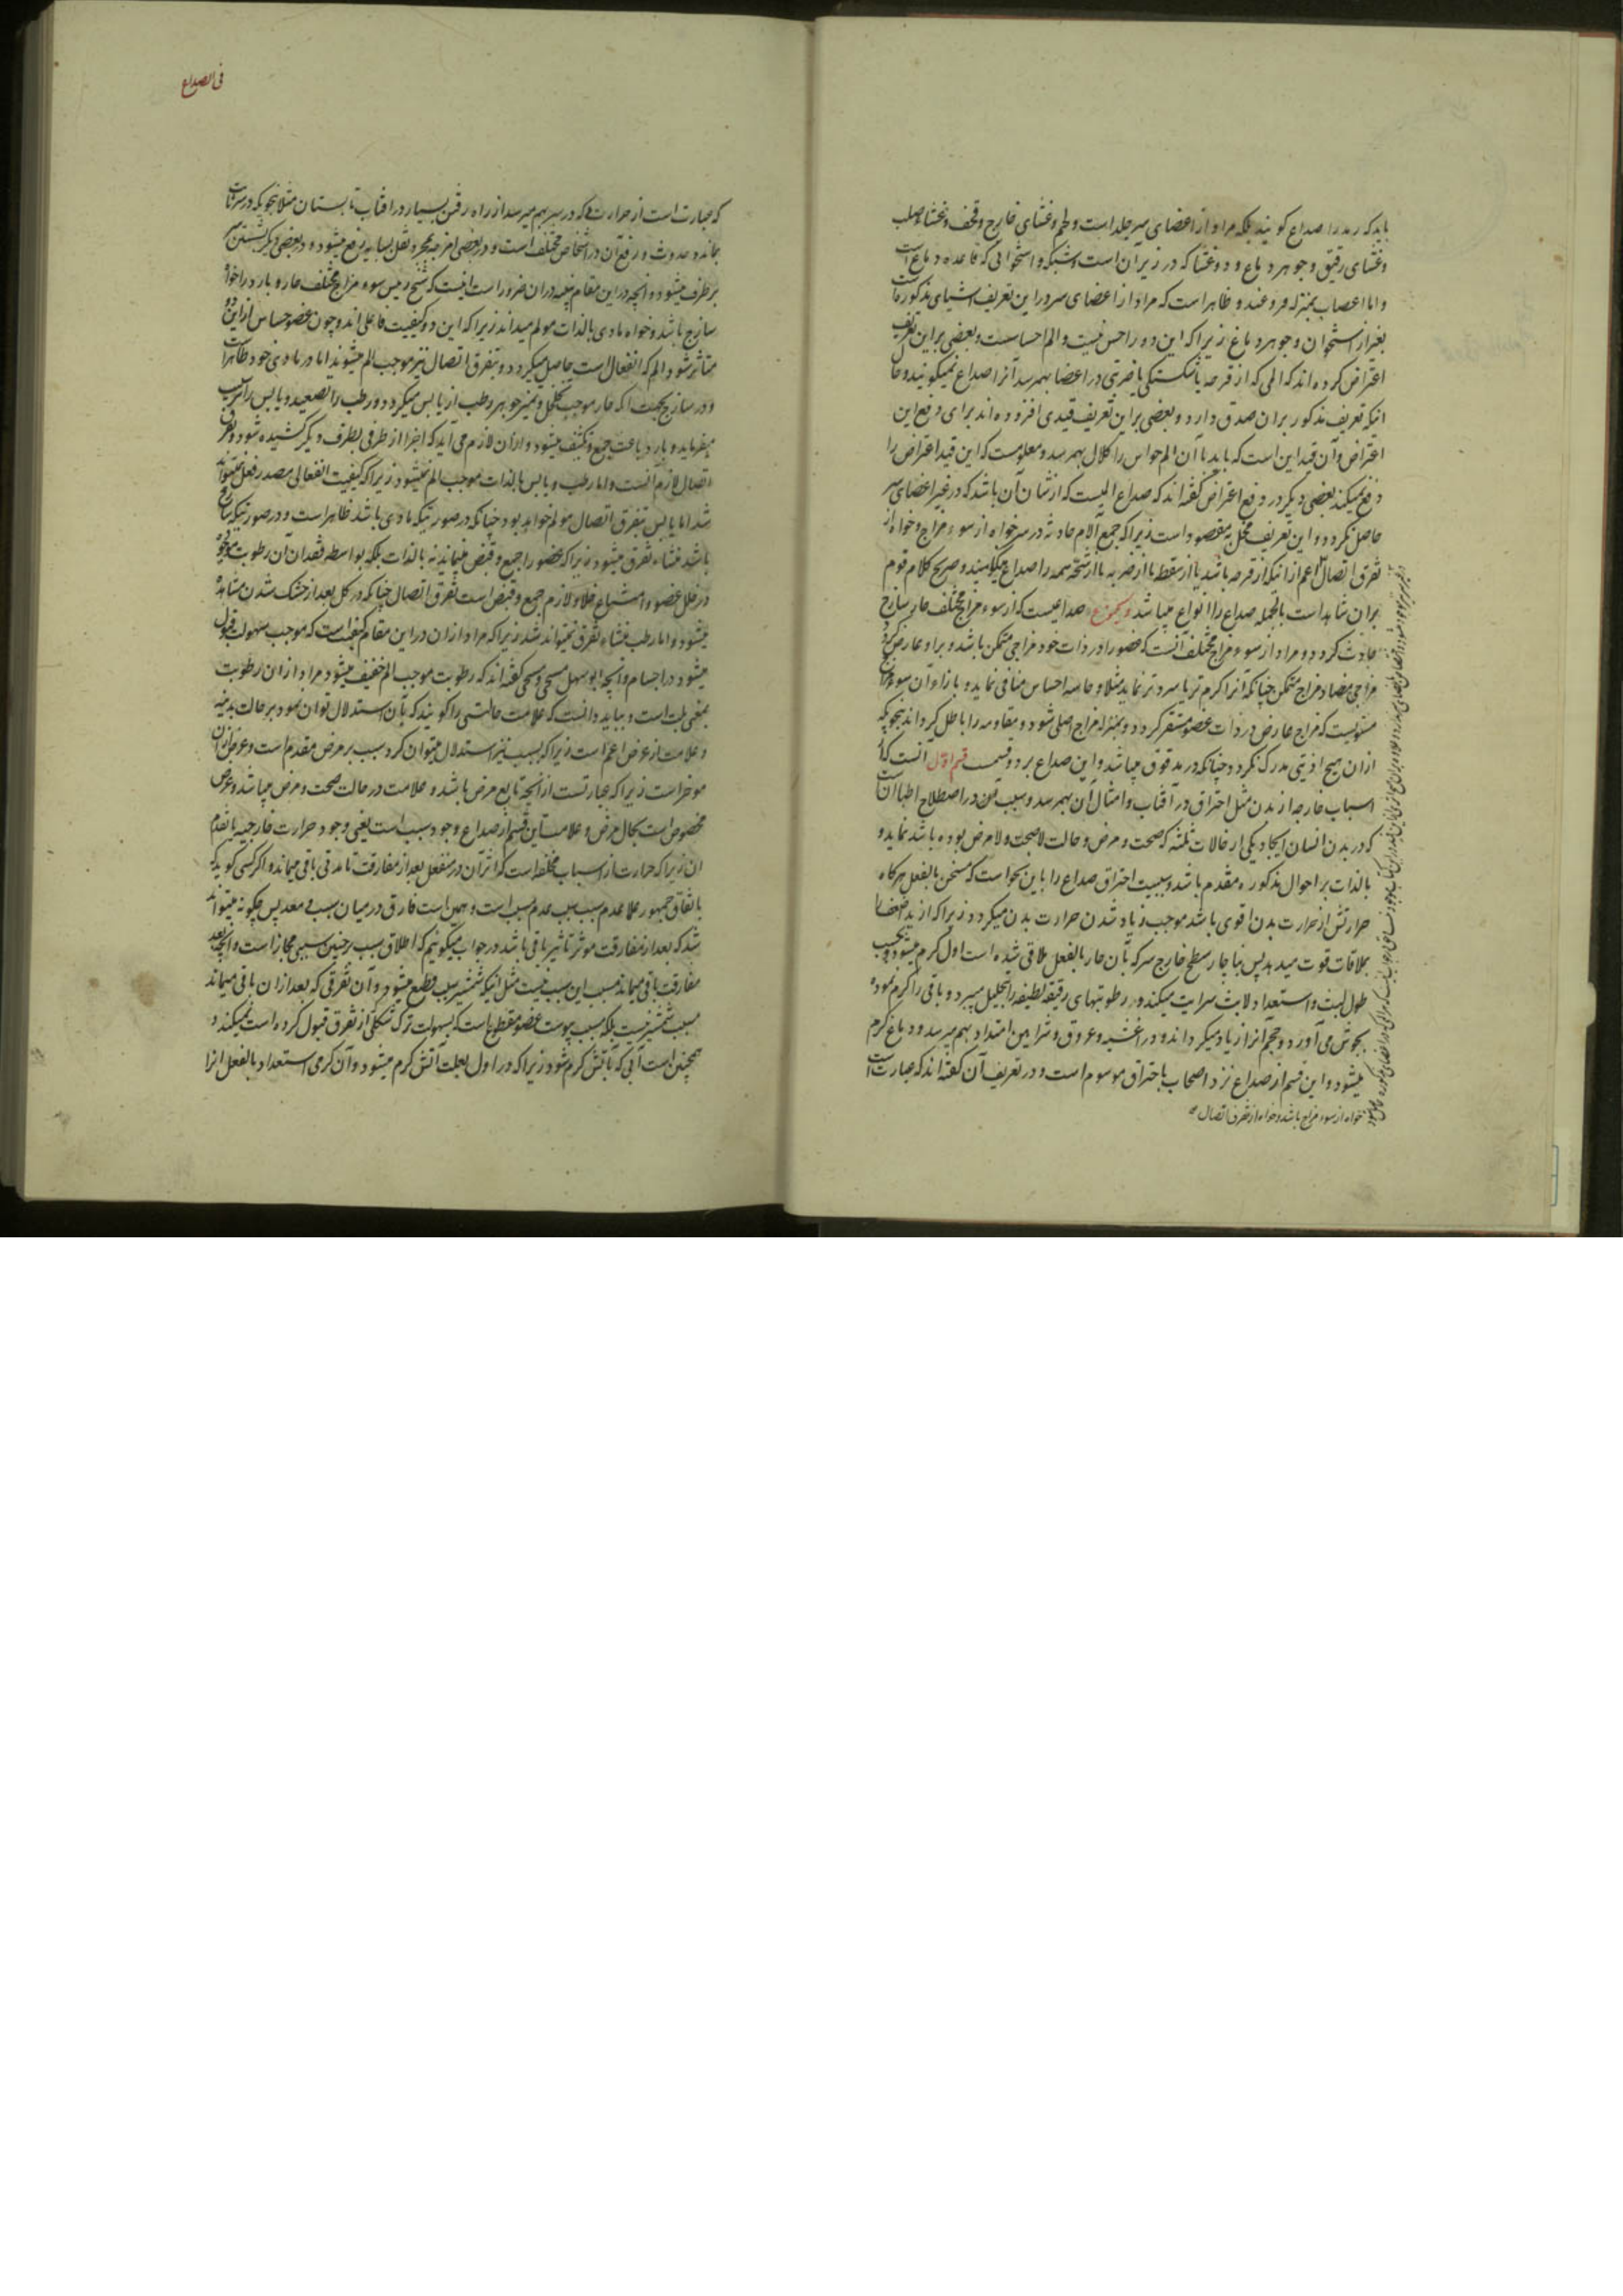 باید که رمد را صداع کویند بلکه مراد از اعضای سر جلد است و لحم و غشای خارج و قحف و غشاء صلب
و غشای رقیق و جوهر دماغ و دو غشا که در زیر آن است و شبکه و استخوانی که قاعده دماغ است
و اما اعصاب بمنزله فروعند و ظاهر است که مراد از اعضای سر در این تعریف اشیای مذکور است
بغیر از استخوان و جوهر دماغ زیرا که این دو را حس نیست و الم احساسست و بعضی بر این تعریف
اعتراض کرده اند که المی که از قرحه یا شکستگی یا ضربتی در اعضا بهمرسد آنرا صداع نمیکویند و حال
آنکه تعریف مذکور بران صدق دارد و بعضی براین تعریف قیدی افزوده اند برای دفع این
اعتراض و آن قید این است که باید با آن الم حواس را کلال بهمرسد و معلومست که این قید اعتراض را
دفع نمیکند بعضی دیکر در دفع اعتراض کفته اند که صداع المیست که از شان آن باشد که در غیر اعضای سر
حاصل نکردد و این تعریف مخل به مقصود است زیرا که جمیع آلام حادثه در سر خواه از سوء مزاج و خواه از
تفرق اتصال اعم از آنیکه از قرحه باشد یا از سقطه یا از ضربه یا از شجه همه را صداع میکویند و صریح کلام قوم
بران شاهد است بالجمله صداع را انواع میباشد و یکنوع صداعیست که از سوء مزاج مختلف حار ساذج
حادث کردد و مراد از سوء مزاج مختلف آنست که عضو را در ذات خود مزاجی متمکن باشد و براو عارض کردد
مزاجی مضاد مزاج متمکن چنانکه آنرا کرم تر یا سردتر نماید مثلا و حاسه احساس منافی نماید و بازاء آن سوء مزاج
مستویست که مزاج عارض در ذات عضو مستقر کردد و بمنزله مزاج اصلی شود و مقاومه را باطل کرداند بنحویکه
ازان هیچ اذیتی مدرک نکردد چنانکه در مدقوق میباشد و این صداع بر دو قسمست قسم اول آنست که از
اسباب خارجه از بدن مثل احتراق در آفتاب و امثال آن بهمرسد و سبب در اصطلاح اطبا آن است
که در بدن انسان ایجاد یکی از حالات ثلثه که صحت و مرض و حالت لاصحت و لامرض بوده باشد نماید و
بالذات بر احوال مذکوره مقدم باشد و سببیت احتراق صداع را باین نحو است که مسخن بالفعل هرکاه
حرارتش از حرارت بدن اقوی باشد موجب زیاد شدن حرارت بدن میکردد زیرا که
ملاقات قوت میدهد پس ناچار سطح خارج سر که بآن حار بالفعل ملاقی شده است اول کرم میشود و بحسب
طول لبث و استعداد لابث سرایت میکند و رطوبتهای رقیقه لطیفه را بتحلیل میبرد و باقی را کرم نموده
بجوش می آورد و حجم آنرا زیاد میکرداند و در اغشیه و عروق و شرایین امتداد بهم میرسد و دماغ کرم
میشود و این قسم از صداع نزد اصحاب باحتراق موسوم است و در تعریف آن کفته اند که عبارت است
خواه از سوء مزاج باشد و خواه از تفرق اتصال
فی الصداع
که عبارت است از حرارتی که در سر بهم میرسد از راه رفتن بسیار در افتاب تابستان مثلا بنحویکه در سر ثابت
بماند و حدوث و رفع آن در اشخاص مختلف است و در بعضی امزجه بمجرد نقل بسایه رفع میشود و در بعضی دیکر بشستن سر
برطرف میشود و آنچه در این مقام تنبیه دران ضرور است اینست که شیخ رئیس سوء مزاج مختلف حار و بارد را خواه
ساذج باشد و خواه مادی بالذات مولم میداند زیرا که این دو کیفیت فاعلی اند و چون عضو حساس ازاین دو
متاثر شود الم که انفعال است حاصل میکردد و بتفرق اتصال نیز موجب الم میشوند اما در مادی خود ظاهر است
و در ساذج بجهت آنکه حار موجب تخلخل و تمیز جوهر رطب از یابس میکردد و رطب را تصعید و یابس را ترسیب
میفرماید و بارد باعث جمع و تکثیف میشود و ازان لازم می آید که اجزا از طرفی بطرف دیکر کشیده شود و تفرق
اتصال لازم آنست و اما رطب و یابس بالذات موجب الم نمیشود زیرا که کیفیت انفعالی مصدر فعل نمیتواند
شد اما یابس بتفرق اتصال مولم خواهد بود چنانکه در صورتیکه مادی باشد ظاهر است و در صورتیکه ساذج
باشد منشاء تفرق میشود زیرا که عضو را جمع و قبض مینماید نه بالذات بلکه بواسطه فقدان آن رطوبت موجوده
در خلل عضو و امتناع خلا و لازم جمع و قبض است تفرق اتصال چنانکه در کل بعد از خشک شدن مشاهده
میشود و اما رطب منشاء تفرق نمیتواند شد زیرا که مراد ازان در این مقام کیفیت است که موجب سهولت قبول
میشود در اجسام و آنچه ابوسهل مسیحی و مسیحی کفته اند که رطوبت موجب الم خفیف میشود مراد ازان رطوبت
بمعنی بلت است و بباید دانست که علامت حالتی را کویند که بآن استدلال توان نمود بر حالت بدنیه
و علامت از عرض اعم است زیرا که بسبب نیز استدلال میتوان کرد سبب بر مرض مقدم است و عرض ازان
موخر است زیرا که عبارتست از آنچه تابع مرض باشد و علامت در حالت صحت و مرض میباشد و عرض
مخصوص است بحال مرض و علامت این قسم از صداع وجود سبب است یعنی وجود حرارت خارجیه یا تقدم
ان زیرا که حرارت از اسباب مخلفه است که اثر آن در منفعل بعد از مفارقت تا مدتی باقی میماند و اکر کسی کوید که
باتفاق جمهور علما عدم سبب سبب عدم مسبب است و همین است فارق در میان سبب و معد پس چکونه میتواند
شد که بعد از مفارقت موثر تاثیر باقی باشد در جواب میکوئیم که اطلاق سبب بر چنین سببی مجاز است و آنچه بعد
مفارقت باقی میماند مسبب این سبب نیست مثل آنیکه شمشیر سبب قطع میشود و آن تفرقی که بعد ازان باقی میماند
مسبب شمشیر نیست بلکه مسبب یبوست عضو مقطوع است که بسهولت ترک شکلی از تفرق قبول کرده است نمیکند و
همچنین است آبی که بآتش کرم شود زیرا که در اول بعلت آتش کرم میشود و آن کرمی استعداد بالفعل آنرا